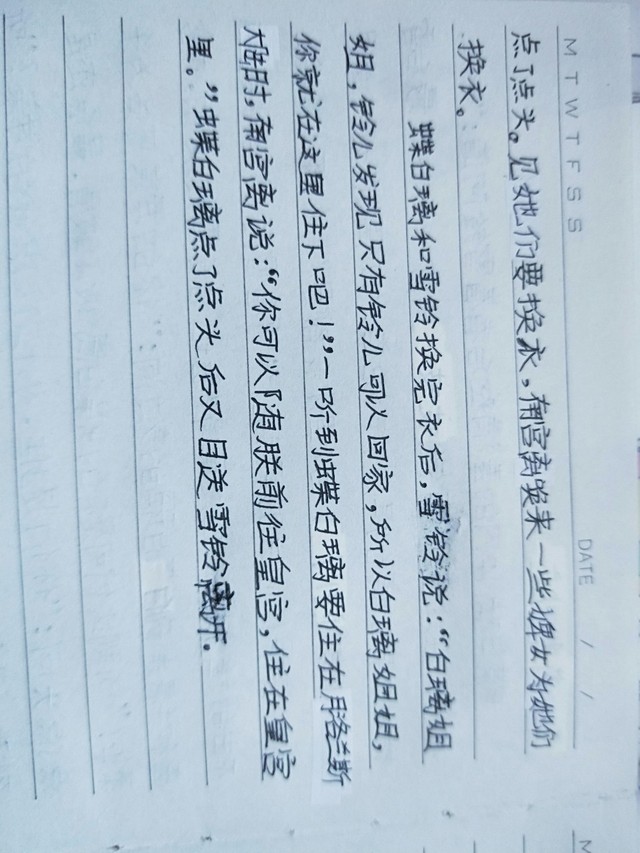 M T W T F S S DATE / /
点了点头。见她们要换衣,南宫离唤来一些婢女为她们
换衣。
蝶白璃和雪铃换完衣后,雪铃说:“白璃姐
姐,铃儿发现只有铃儿可以回家,所以白璃姐姐,
你就在这里住下吧!”一听到蝶白璃要住在月洛兰斯
大陆时,南宫离说:“你可以随朕前往皇宫,住在皇宫
里。”蝶白璃点了点头后又目送雪铃离开。